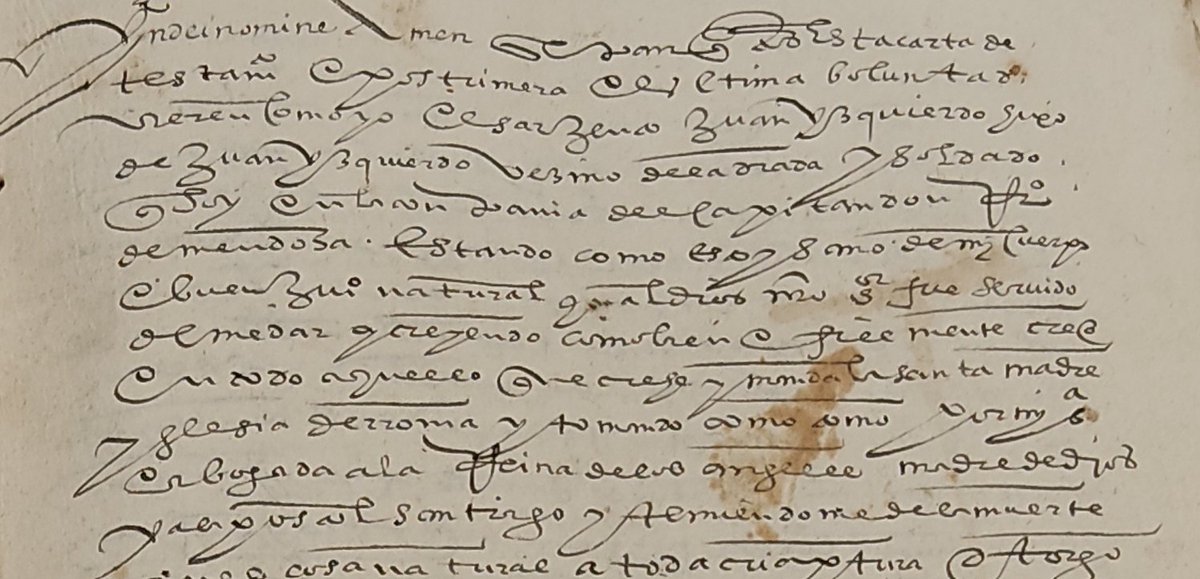 Yndeinomine Amen Sepan qtos Esta carta de
testamo E postrimera E Ultima boluntad
vieren como yo Cesar Juan yzquierdo hijo
de Juan yzquierdo vezino de la adrada y soldado
q soy En la conpania del capitan don fro
de mendosa. Estando como Estoy sano de mj cuerpo
E buen Juio natural qual dios nro sor fue seruido
de me dar y creyendo como bien E firmemente creo
En todo aquello que cree y manda la santa madre
yglesia de rroma y tomando como tomo por mj sa
E abogada a la Reina de los angeles madre de djos
y al apostol santiago y temiendome de la muerte
ques cosa natural a toda criatura E otorgo